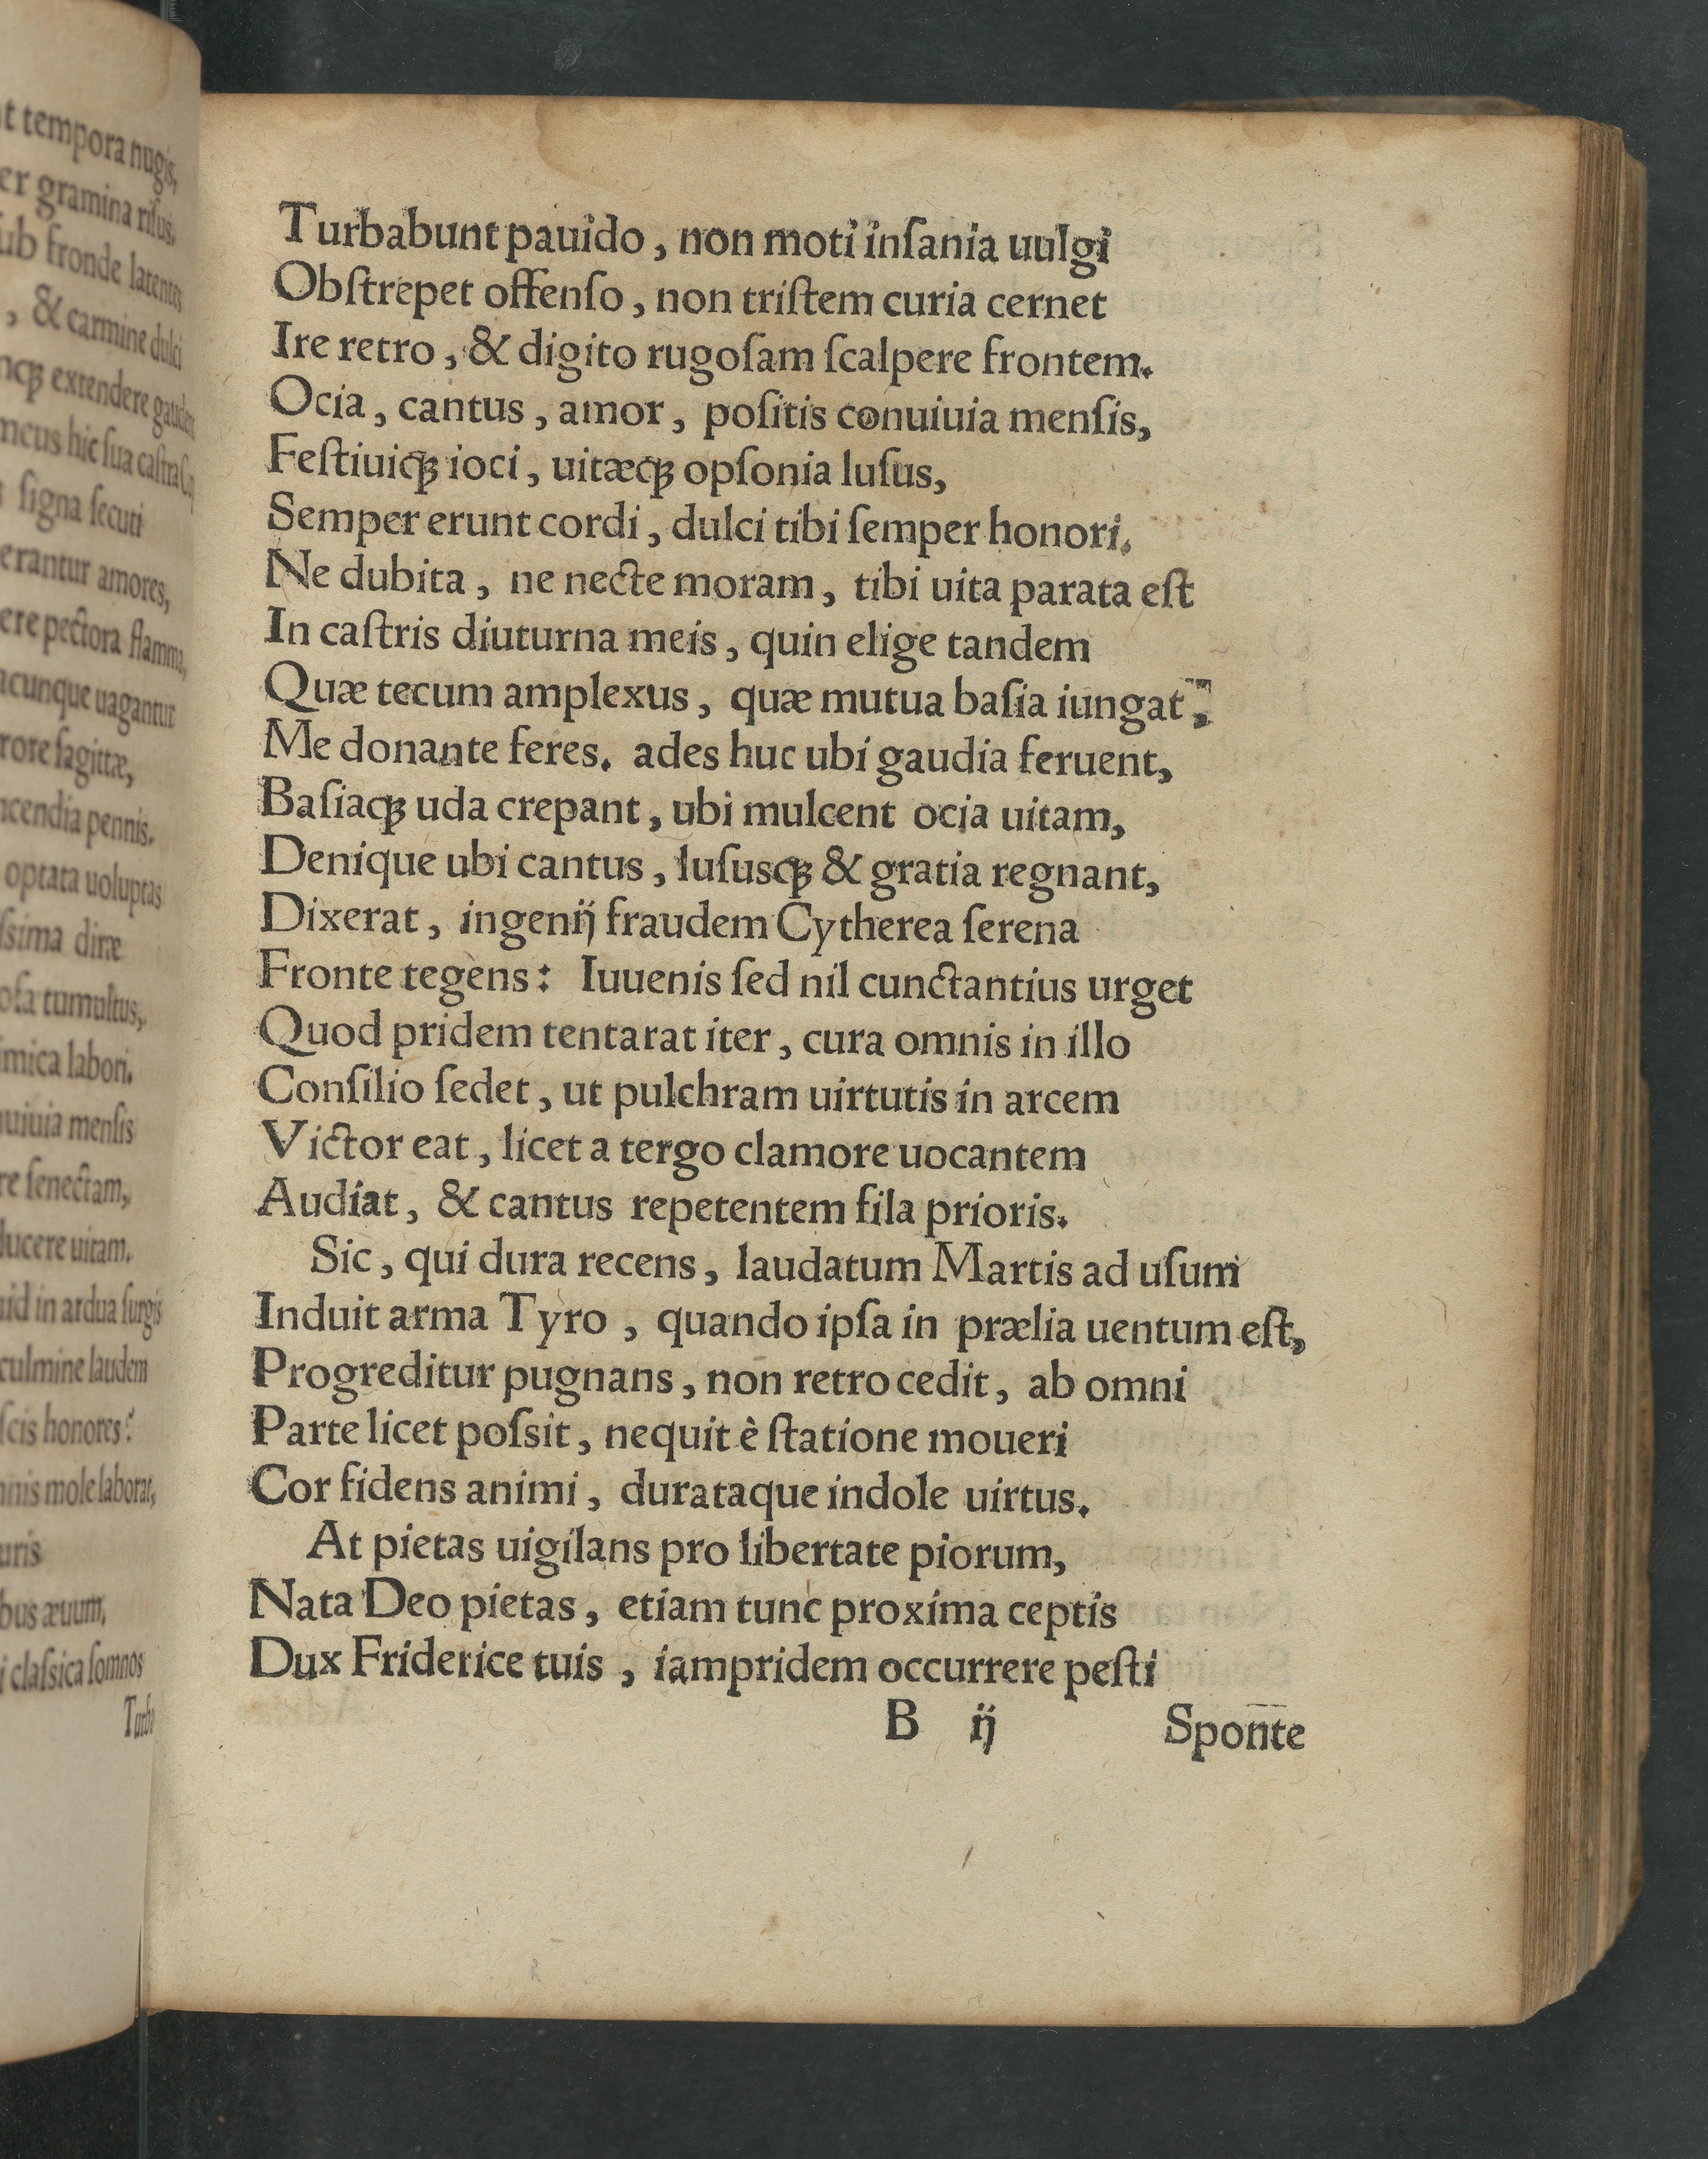 t tempora nugis,
er gramina risus.
ub fronde latentes
, & carmine dulci
ncꝙ extendere gaudent
mcus hic sua castra
signa secuti
erantur amores,
ere pectora flamma,
acunque uagantur
rore sagittæ,
ncendia pennis.
optata uoluptas
ssima diræ
osa tumultus,
imica labori.
uiuia mensis
re senectam,
ducere uitam.
uid in ardua surgis
culmine laudem
scis honores?
nnis mole laborat,
uris
bus æuum,
i classica somnos
Turba
Turbabunt pauido, non moti insania uulgi
Obſtrepet offenſo, non triſtem curia cernet
Ire retro, & digito rugoſam ſcalpere frontem.
Ocia, cantus, amor, poſitis conuiuia menſis,
Feſtiuiqꝫ ioci, uitæqꝫ opſonia luſus,
Semper erunt cordi, dulci tibi ſemper honori.
Ne dubita, ne necte moram, tibi uita parata eſt
In caſtris diuturna meis, quin elige tandem
Quæ tecum amplexus, quæ mutua baſia iungat,
Me donante feres. ades huc ubi gaudia feruent,
Baſiaqꝫ uda crepant, ubi mulcent ocia uitam,
Denique ubi cantus, luſusqꝫ & gratia regnant,
Dixerat, ingenij fraudem Cytherea ſerena
Fronte tegens: Iuuenis ſed nil cunctantius urget
Quod pridem tentarat iter, cura omnis in illo
Conſilio ſedet, ut pulchram uirtutis in arcem
Victor eat, licet a tergo clamore uocantem
Audiat, & cantus repetentem fila prioris.
Sic, qui dura recens, laudatum Martis ad uſum
Induit arma Tyro, quando ipſa in prælia uentum eſt,
Progreditur pugnans, non retro cedit, ab omni
Parte licet poſsit, nequit è ſtatione moueri
Cor fidens animi, durataque indole uirtus.
At pietas uigilans pro libertate piorum,
Nata Deo pietas, etiam tunc proxima ceptis
Dux Friderice tuis, iampridem occurrere peſti
B ij Sponte